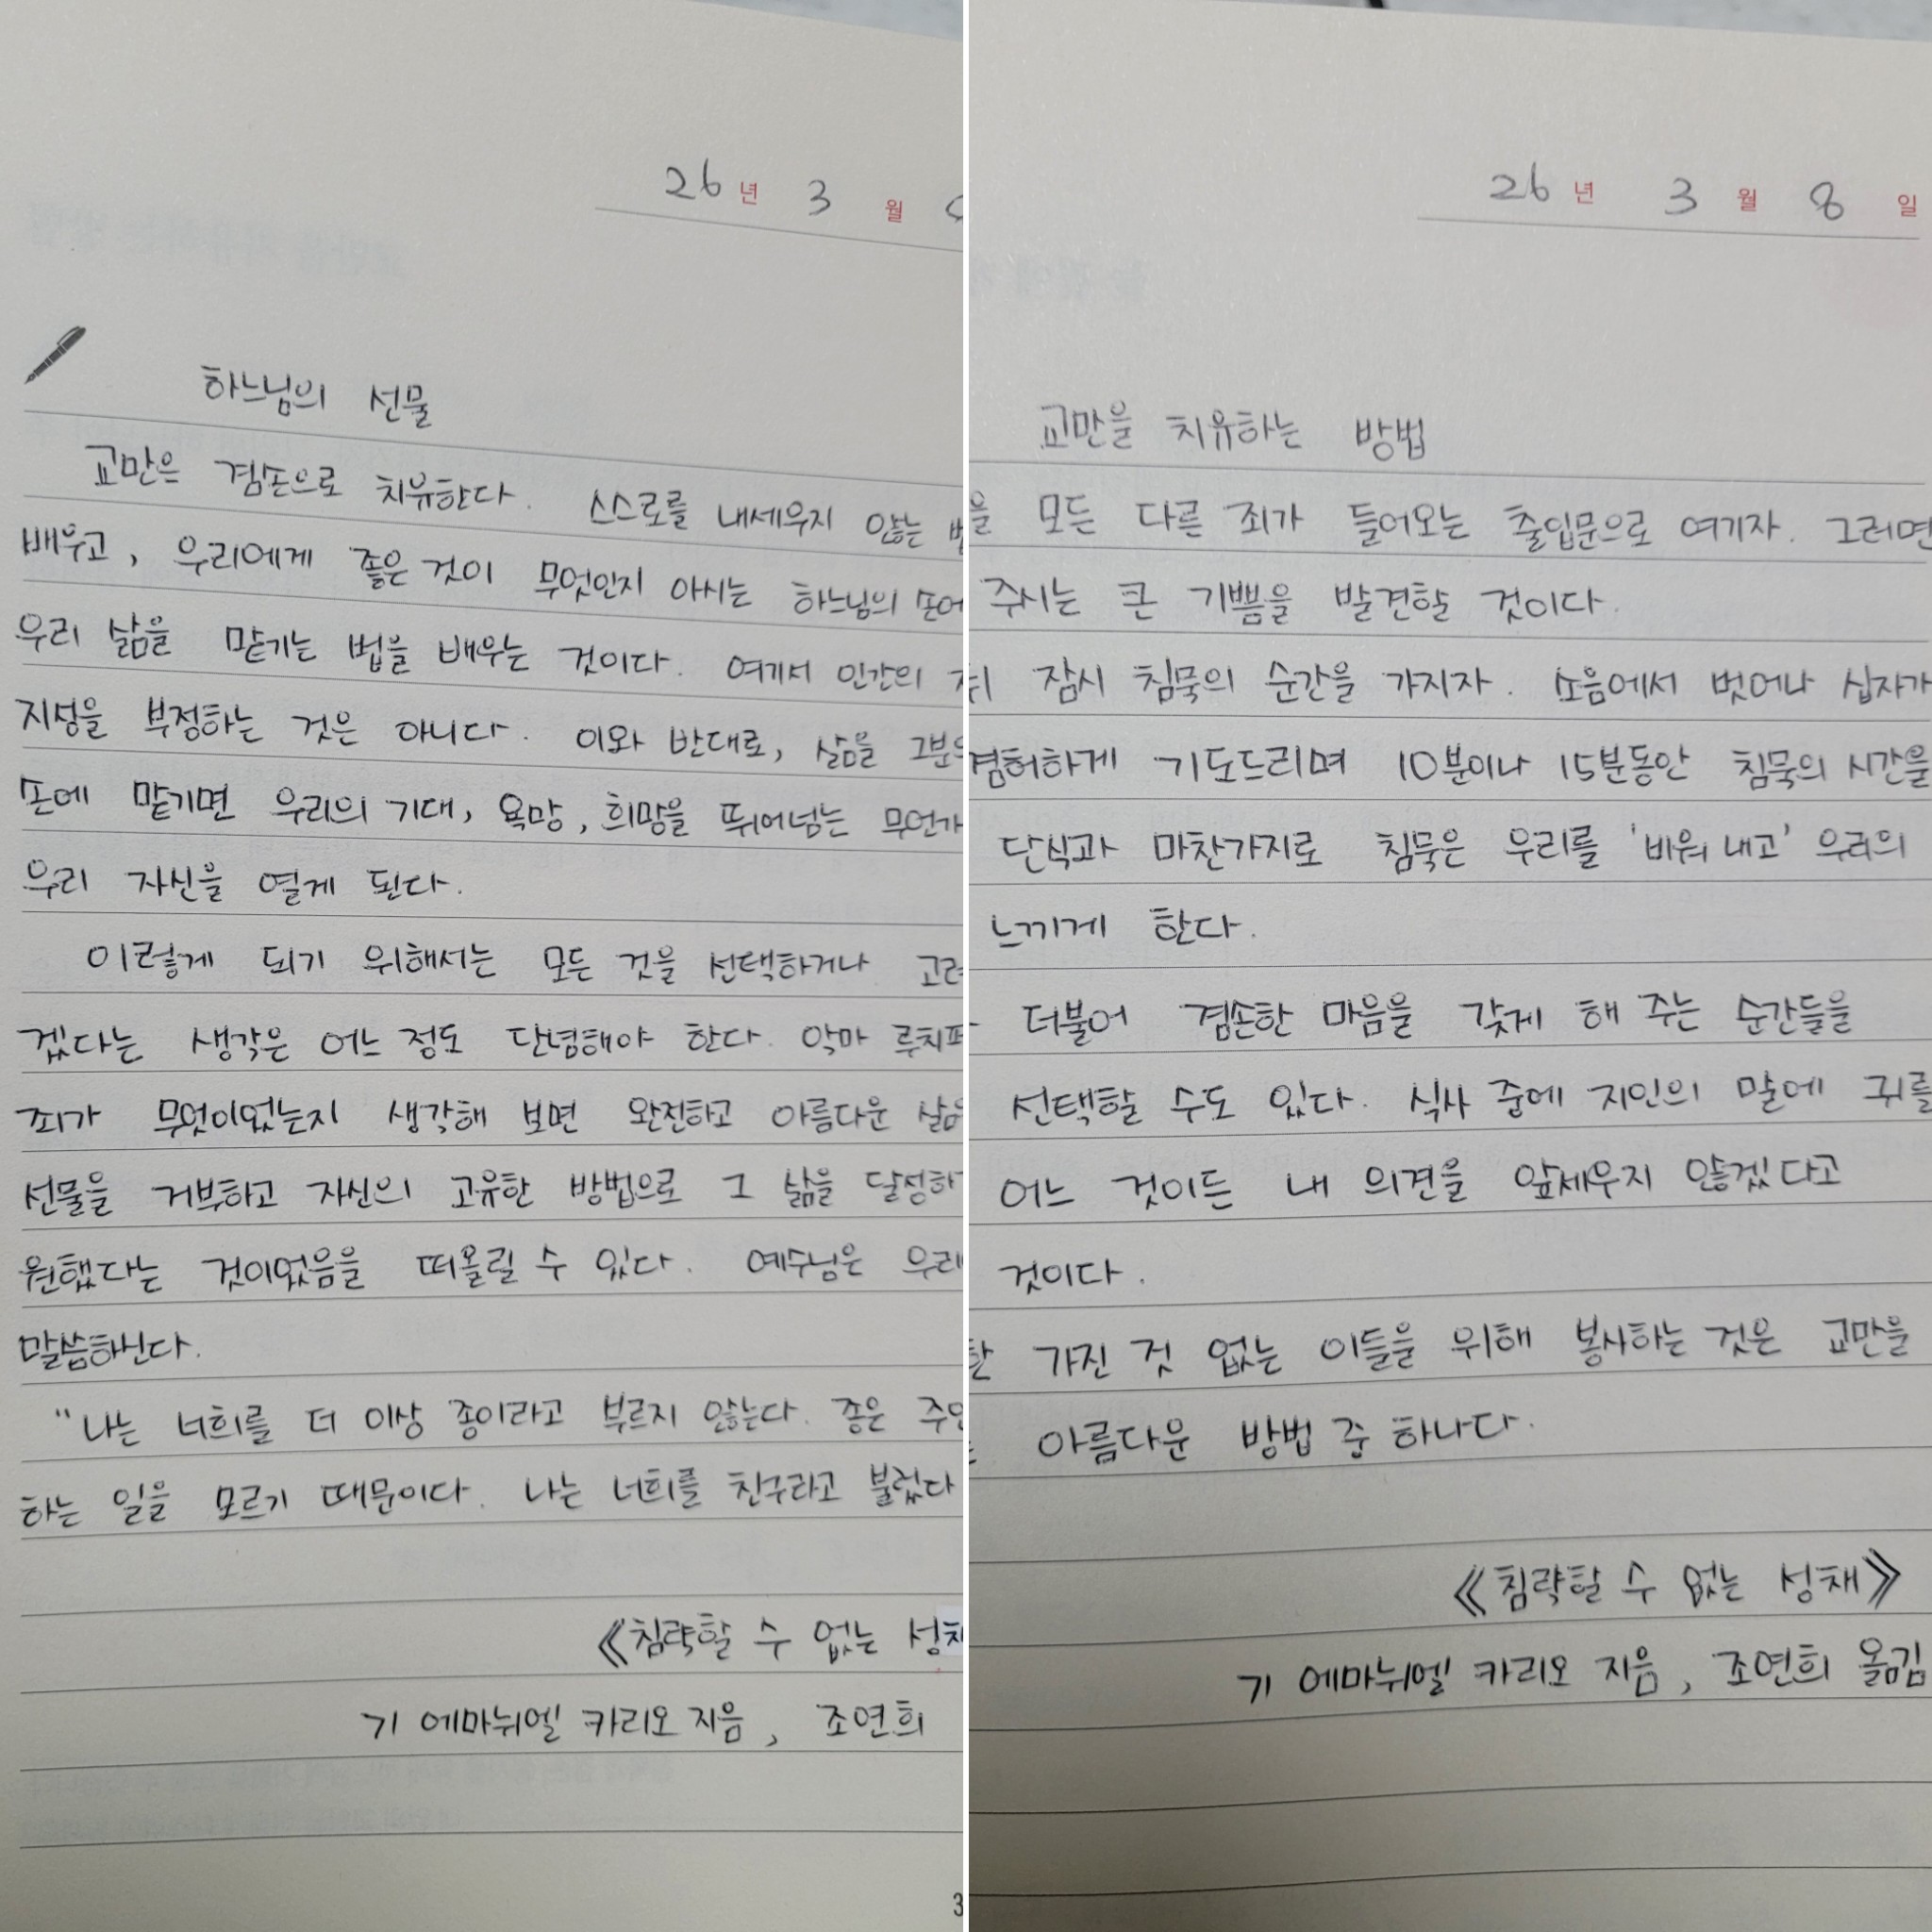 26년 3월
하느님의 선물
교만은 겸손으로 치유한다. 스스로를 내세우지 않는
배우고, 우리에게 좋은 것이 무엇인지 아시는 하느님의 손에
우리 삶을 맡기는 법을 배우는 것이다. 여기서 인간의
지성을 부정하는 것은 아니다. 이와 반대로, 삶을 그분의
손에 맡기면 우리의 기대, 욕망, 희망을 뛰어넘는 무언가
우리 자신을 열게 된다.
이렇게 되기 위해서는 모든 것을 선택하거나
겠다는 생각은 어느 정도 단념해야 한다. 악마 루치퍼
죄가 무엇이었는지 생각해 보면 완전하고 아름다운
선물을 거부하고 자신의 고유한 방법으로 그 삶을 달성하
원했다는 것이었음을 떠올릴 수 있다. 예수님은 우리
말씀하신다.
"나는 너희를 더 이상 종이라고 부르지 않는다. 종은 주인
하는 일을 모르기 때문이다. 나는 너희를 친구라고 불렀다
《침략할 수 없는 성채
기 에마뉘엘 카리오 지음, 조연희
3
26년 3월 8일
교만을 치유하는 방법
을 모든 다른 죄가 들어오는 출입문으로 여기자. 그러면
주시는 큰 기쁨을 발견할 것이다.
잠시 침묵의 순간을 가지자. 소음에서 벗어나 십자가
겸허하게 기도드리며 10분이나 15분동안 침묵의 시간을
단식과 마찬가지로 침묵은 우리를 '비워 내고' 우리의
느끼게 한다.
더불어 겸손한 마음을 갖게 해 주는 순간들을
선택할 수도 있다. 식사 중에 지인의 말에 귀를
어느 것이든 내 의견을 앞세우지 않겠다고
것이다.
가진 것 없는 이들을 위해 봉사하는 것은 교만을
아름다운 방법 중 하나다.
《침략할 수 없는 성채》
기 에마뉘엘 카리오 지음, 조연희 옮김